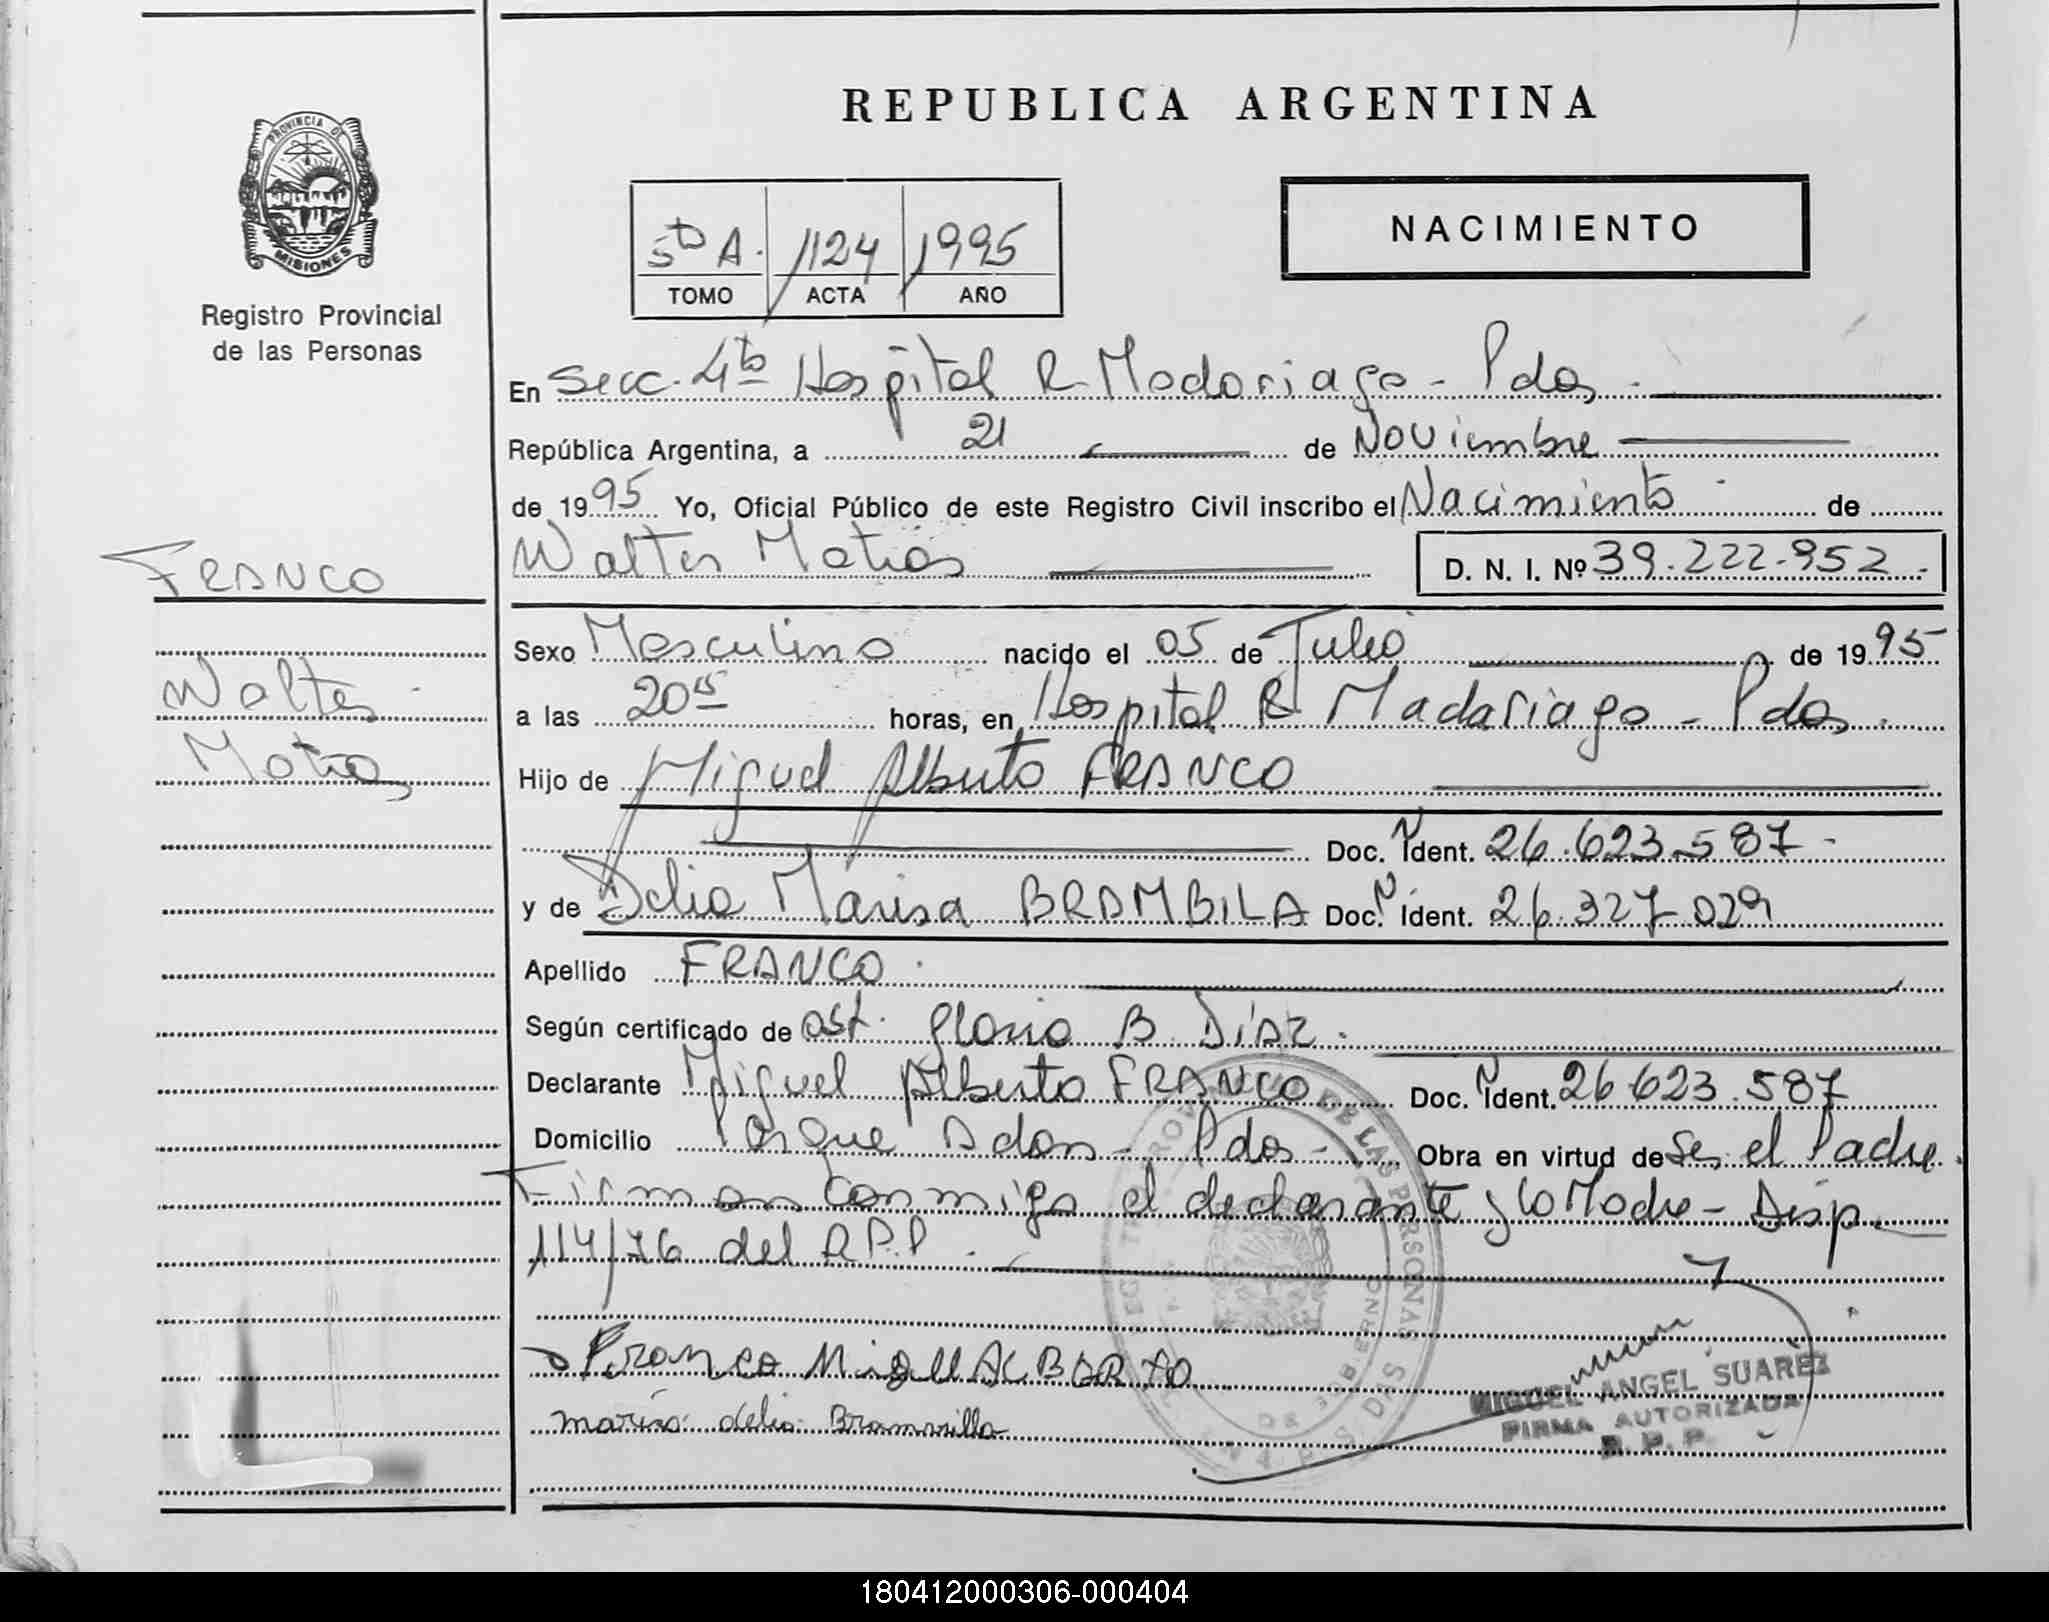 REPUBLICA ARGENTINA
PROVINCIA DE
MISIONES
Registro Provincial
de las Personas
5to A. 1124 1995
TOMO ACTA AÑO
NACIMIENTO
En Secc. 4ta Hospital R Madariaga - Pdas.
República Argentina, a 21 de Noviembre
de 1995 Yo, Oficial Público de este Registro Civil inscribo el Nacimiento de
Walter Matias D. N. I. Nº 39.222.952.
FRANCO
Walter
Matias
Sexo Masculino nacido el 05 de Julio de 1995
a las 20 15 horas, en Hospital R Madariaga - Pdas.
Hijo de Miguel Alberto FRANCO
Doc. N Ident. 26.623.587-
y de Delia Marisa BRAMBILA Doc. N Ident. 26.327.029
Apellido FRANCO.
Según certificado de Ost. Gloria B. Diaz.
Declarante Miguel Alberto FRANCO Doc. N Ident. 26.623.587
Domicilio Parque Adam - Pdas - Obra en virtud de Ser el Padre.
Firman conmigo el declarante y la Madre - Disp.
114/76 del R.P.P.
Franco Miguel ALBERTO
marisa delia Bramvilla
MIGUEL ANGEL SUAREZ
FIRMA AUTORIZADA
R. P. P.
180412000306-000404